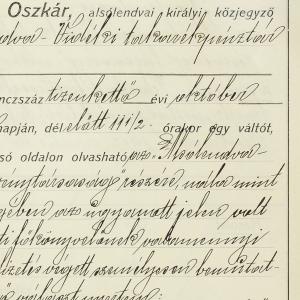 Oszkár, alsólendvai királyi közjegyző
Vidéki takarékpénztár
nczszáz tizenkettő évi október
napján, délelőtt 11 1/2 órakor egy váltót,
só oldalon olvasható, az Alsólendva
részére, mint
az ugyanott jelen volt
főkönyvelőnek valamennyi
fizetés végett személyesen bemutat-